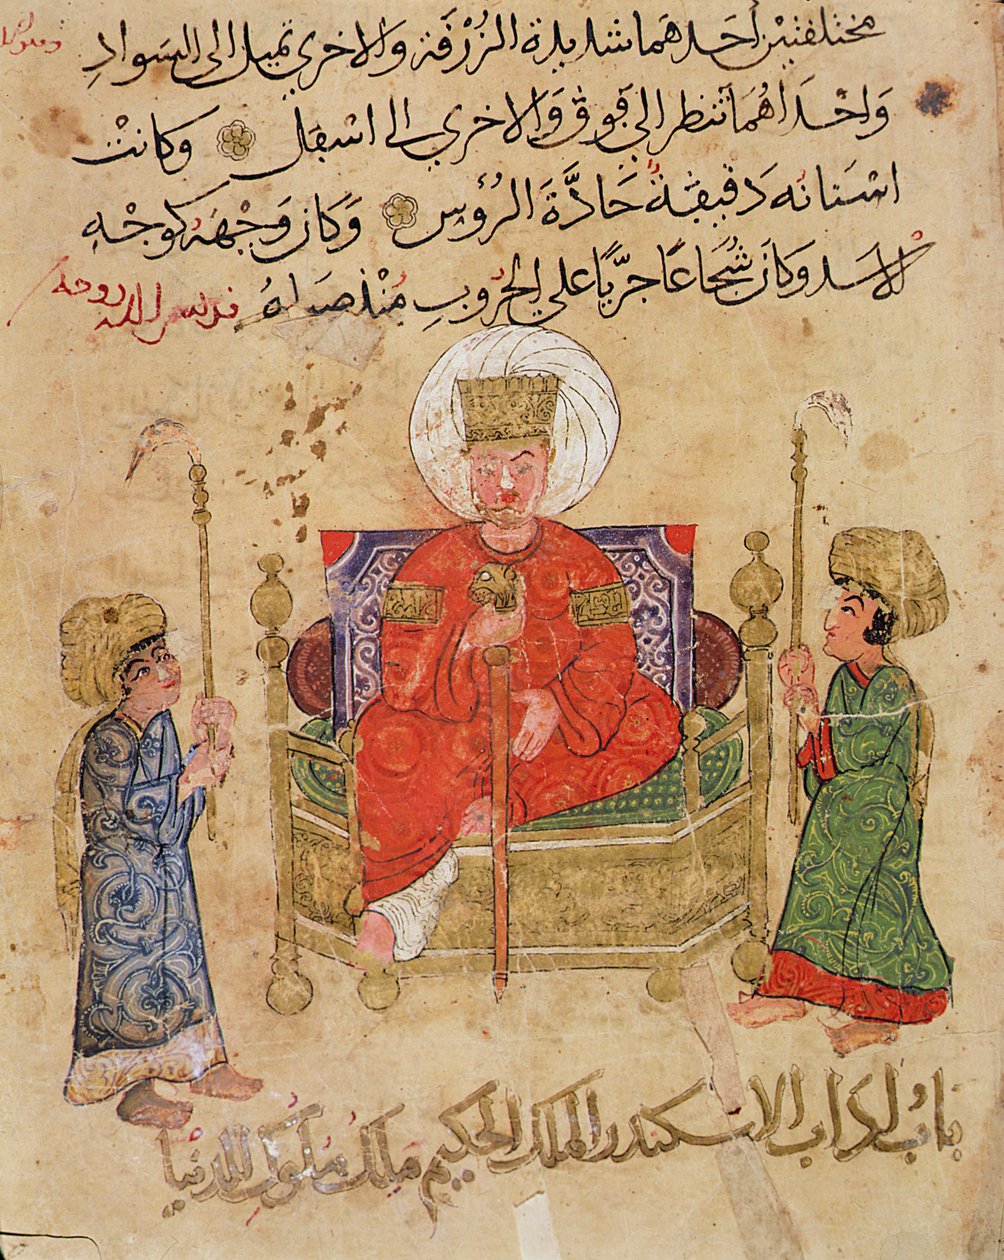 مختلفتين أحدهما شديدة الزُرْقة والاخرى تميل الى السواد
وَاحْدَاهُمَا تنظر الى فَوق وَالاخرى الى اسفل وَكانتْ
اسْنَانه دَقيقةً حَادَّةَ الرُؤُسِ وَكان وَجْهَهُ كوجْهِ
الاسد وَكانَ شُجَاعًا جرّيًا على الحُروبِ مُنْذ صَباهُ قدس الله روحه
بابُ ادَاب الاسكندر الملك الحكيم ملك مُلوك الدنيَا